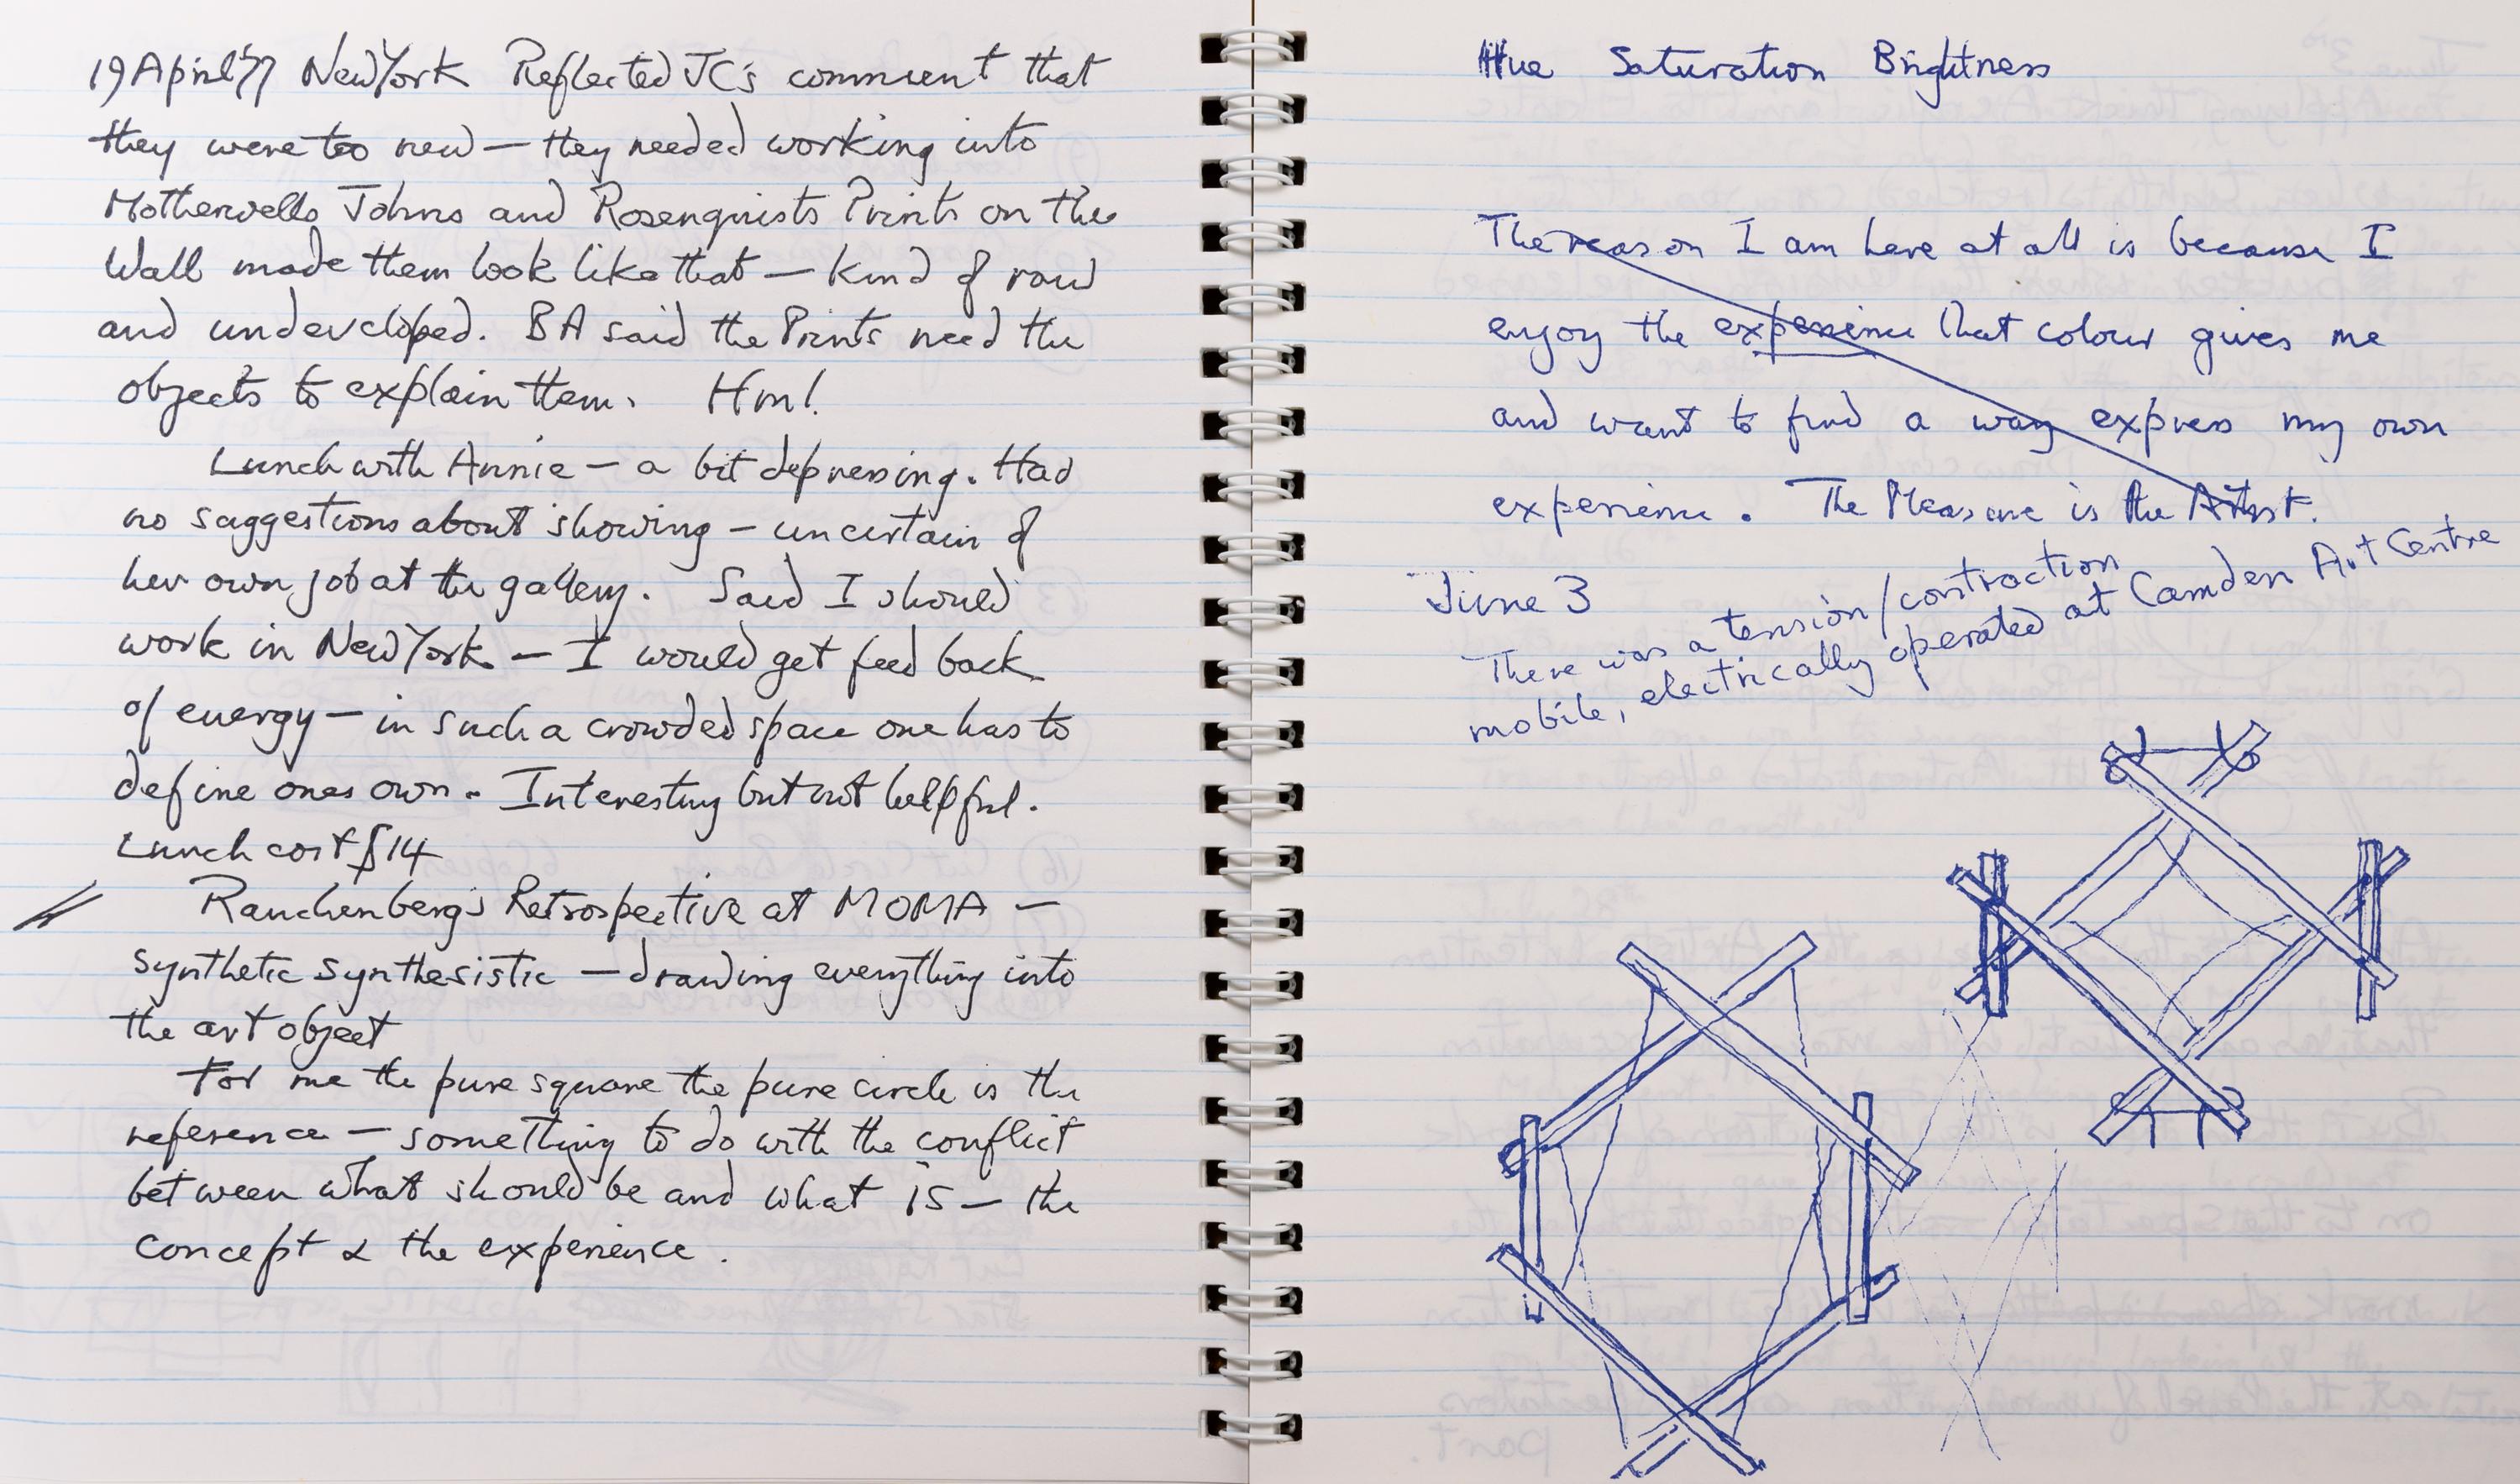 19 April '77 New York Reflected JC's comment that
they were too new — they needed working into
Motherwells Johns and Rosenquists Prints on the
Wall made them look like that — kind of raw
and undeveloped. BA said the Prints need the
objects to explain them. Hm!
Lunch with Annie — a bit depressing. Had
no suggestions about showing — uncertain of
her own job at the gallery. Said I should
work in New York — I would get feed back
of energy — in such a crowded space one has to
define ones own. Interesting but not helpful.
Lunch cost $14
Rauchenberg's Retrospective at MOMA —
Synthetic Synthesistic — drawing everything into
the art object
For me the pure square the pure circle is the
reference — something to do with the conflict
between what should be and what is — the
concept & the experience.
Hue Saturation Brightness
The reason I am here at all is because I
enjoy the experience that colour gives me
and want to find a way express my own
experience. The Measure is the Artist.
June 3
There was a tension/contraction
mobile, electrically operated at Camden Art Centre